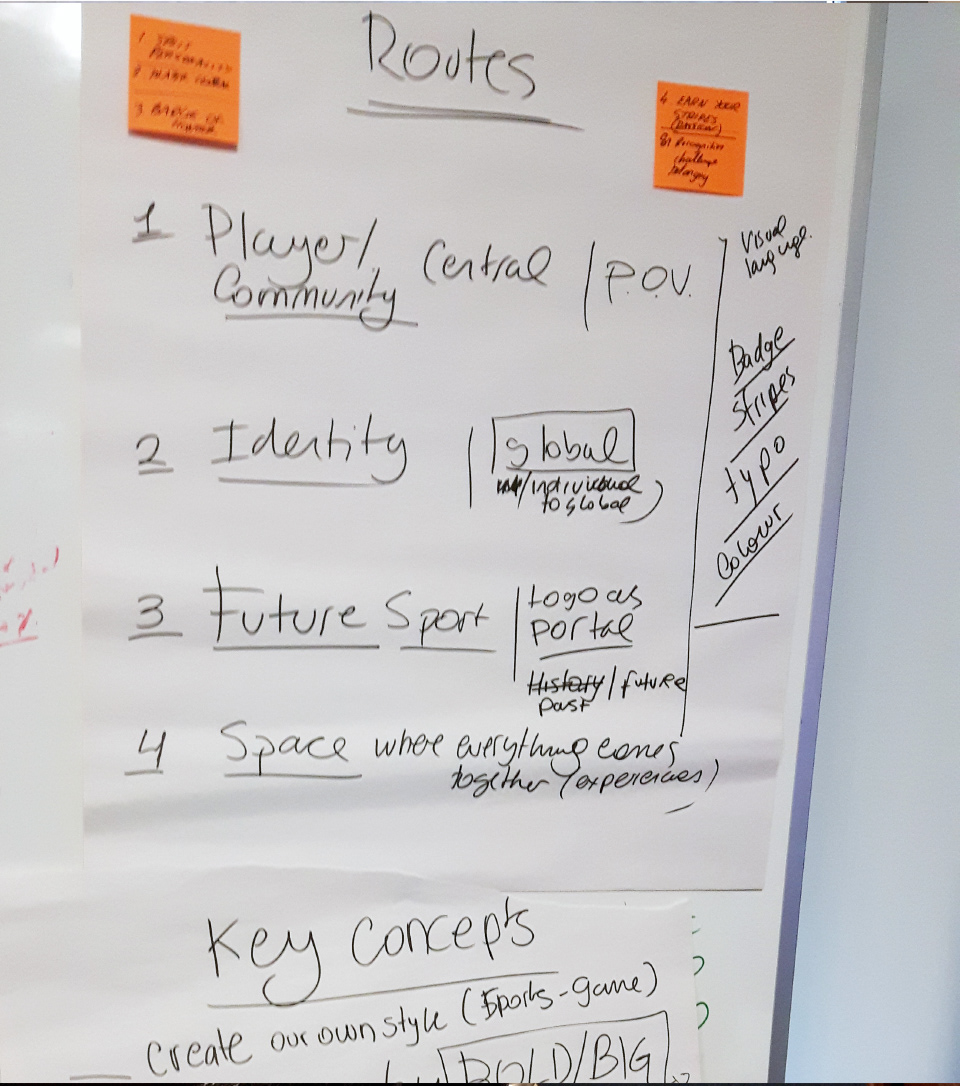 Routes
1 SPLIT
PERSONALITY
2
3 BADGE OF
HONOUR
4 EARN YOUR
STRIPES
Recognition
challenge
belonging
1 Player/
Community Central / P.O.V.
2 Identity | global
/individual
to global)
3 Future Sport | Logo as
portal
History / future
past
4 Space where everything comes
together (experiences)
Visual
language.
Badge
Stripes
typo
Colour
Key Concepts
Create our own style (Sports-game)
BOLD/BIG